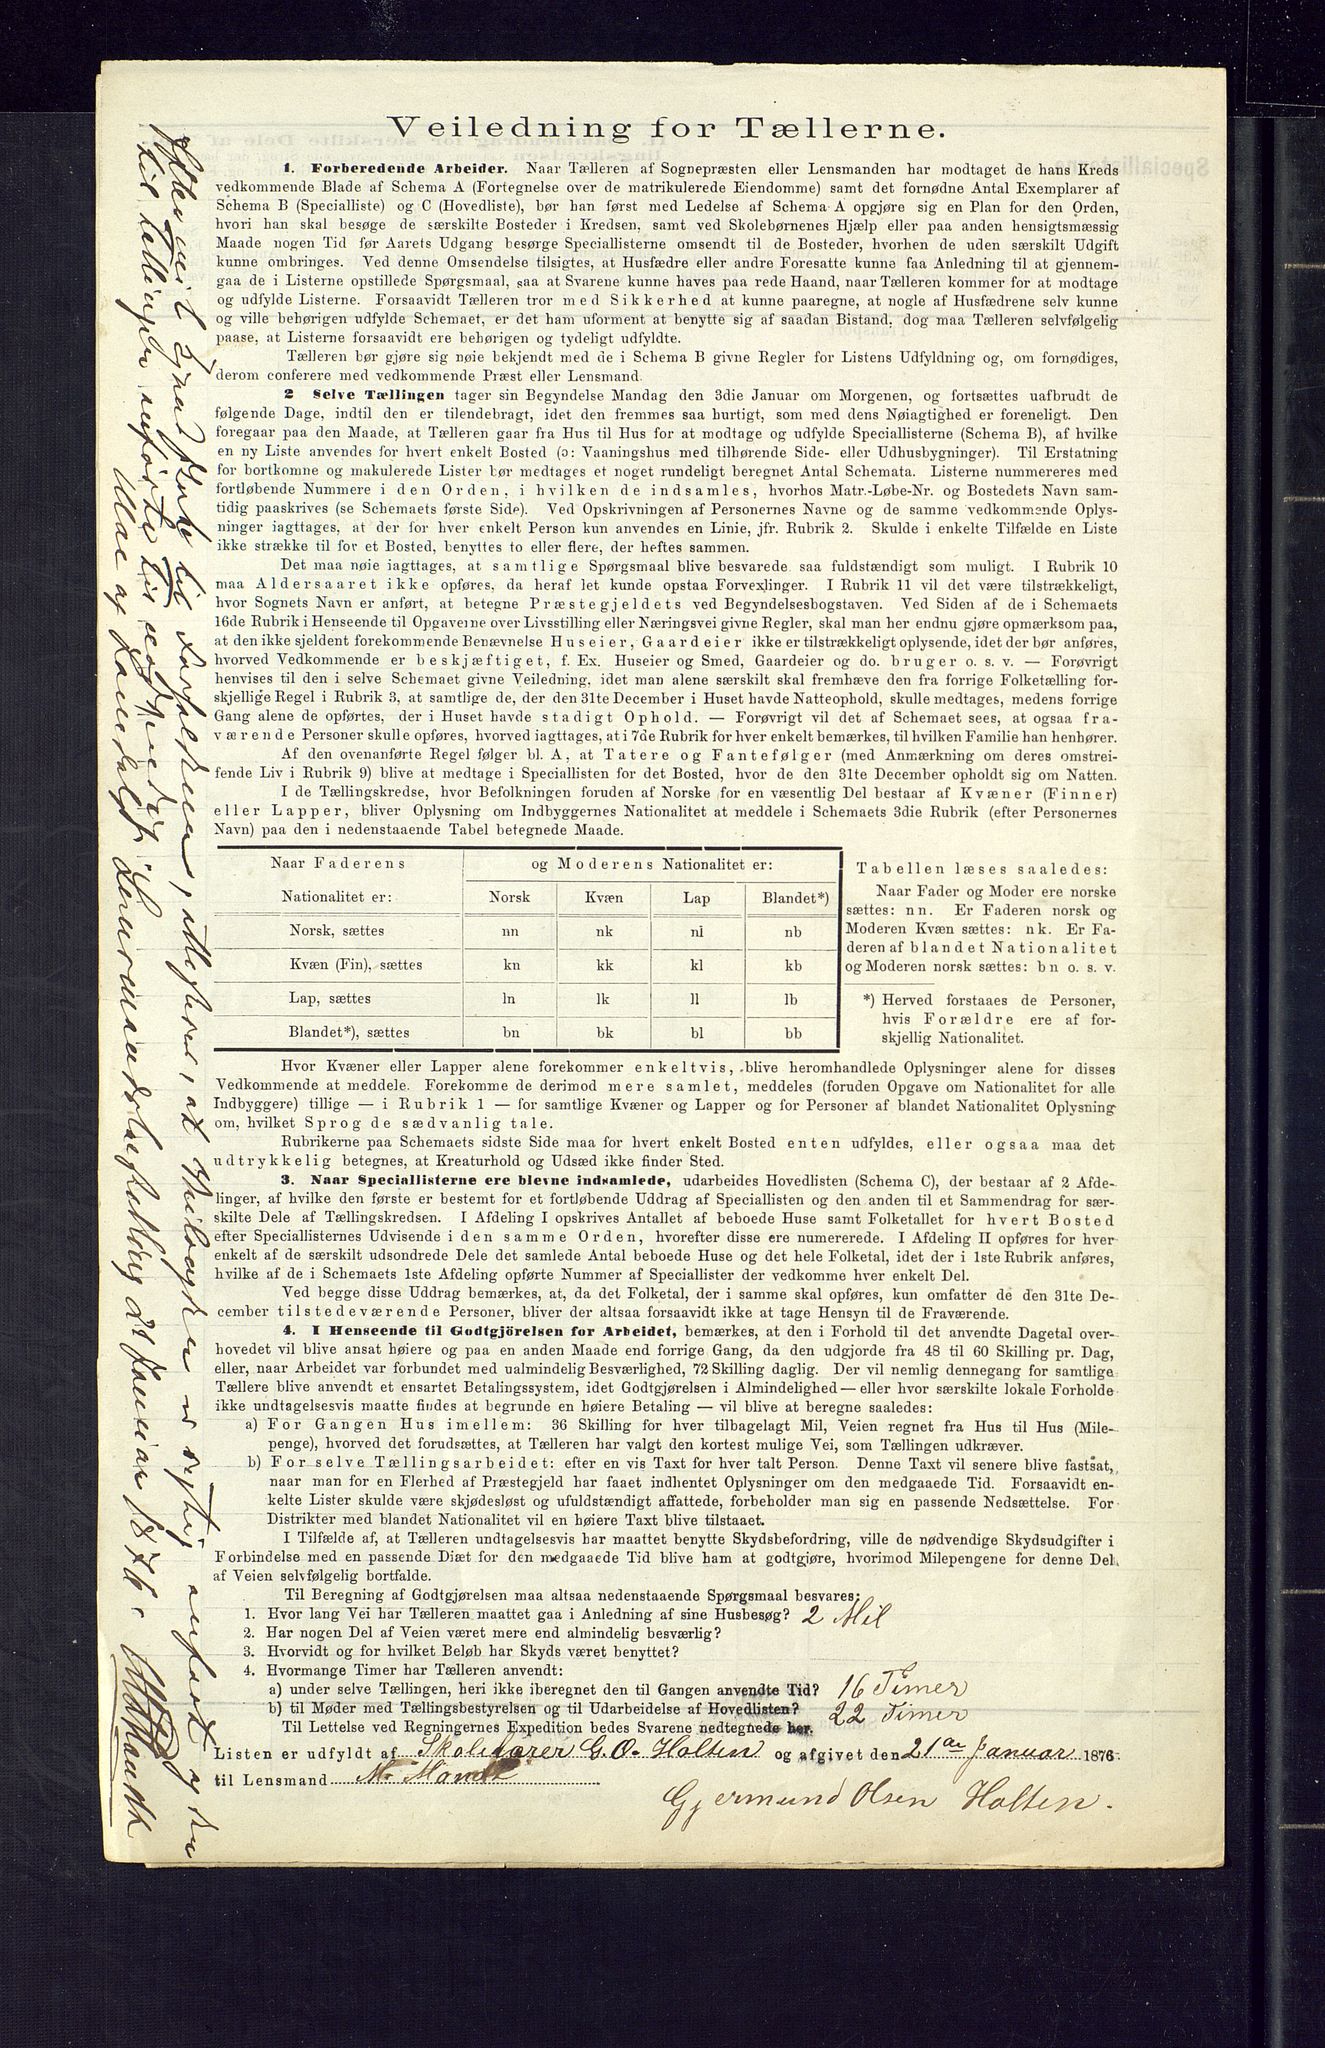 Veiledning for Tællerne.
1. Forberedende Arbeider. Naar Tælleren af Sognepræsten eller Lensmanden har modtaget de hans Kreds
vedkommende Blade af Schema A (Fortegnelse over de matrikulerede Eiendomme) samt det fornødne Antal Exemplarer af
Schema B (Specialliste) og C (Hovedliste), bør han først med Ledelse af Schema A opgjøre sig en Plan for den Orden,
hvori han skal besøge de særskilte Bosteder i Kredsen, samt ved Skolebørnenes Hjælp eller paa anden hensigtsmæssig
Maade nogen Tid før Aarets Udgang besørge Speciallisterne omsendt til de Bosteder, hvorhen de uden særskilt Udgift
kunne ombringes. Ved denne Omsendelse tilsigtes, at Husfædre eller andre Foresatte kunne faa Anledning til at gjennem-
gaa de i Listerne opstillede Spørgsmaal, saa at Svarene kunne haves paa rede Haand, naar Tælleren kommer for at modtage
og udfylde Listerne. Forsaavidt Tælleren tror med Sikkerhed at kunne paaregne, at nogle af Husfædrene selv kunne
og ville behørigen udfylde Schemaet, er det ham uforment at benytte sig af saadan Bistand, dog maa Tælleren selvfølgelig
paase, at Listerne forsaavidt ere behørigen og tydeligt udfyldte.
Tælleren bør gjøre sig nøie bekjendt med de i Schema B givne Regler for Listens Udfyldning og, om fornødiges,
derom conferere med vedkommende Præst eller Lensmand.
2 Selve Tællingen tager sin Begyndelse Mandag den 3die Januar om Morgenen, og fortsættes uafbrudt de
følgende Dage, indtil den er tilendebragt, idet den fremmes saa hurtigt, som med dens Nøiagtighed er foreneligt. Den
foregaar paa den Maade, at Tælleren gaar fra Hus til Hus for at modtage og udfylde Speciallisterne (Schema B), af hvilke
en ny Liste anvendes for hvert enkelt Bosted (ɔ: Vaaningshus med tilhørende Side- eller Udhusbygninger). Til Erstatning
for bortkomne og makulerede Lister bør medtages et noget rundeligt beregnet Antal Schemata. Listerne nummereres med
fortløbende Nummere i den Orden, i hvilken de indsamles, hvorhos Matr.-Løbe-Nr. og Bostedets Navn sam-
tidig paaskrives (se Schemaets første Side). Ved Opskrivningen af Personernes Navne og de samme vedkommende Oplys-
ninger iagttages, at der for hver enkelt Person kun anvendes en Linie, jfr. Rubrik 2. Skulde i enkelte Tilfælde en Liste
ikke strække til for et Bosted, benyttes to eller flere, der heftes sammen.
Det maa nøie iagttages, at samtlige Spørgsmaal blive besvarede saa fuldstændigt som muligt. I Rubrik 10
maa Aldersaaret ikke opføres, da heraf let kunde opstaa Forvexlinger. I Rubrik 11 vil det være tilstrækkeligt,
hvor Sognets Navn er anført, at betegne Præstegjeldets ved Begyndelsesbogstaven. Ved Siden af de i Schemaets
16de Rubrik i Henseende til Opgaverne over Livsstilling eller Næringsvei givne Regler, skal man her endnu gjøre opmærksom paa,
at den ikke sjeldent forekommende Benævnelse Huseier, Gaardeier ikke er tilstrækkeligt oplysende, idet der bør anføres,
hvorved Vedkommende er beskjæftiget, f. Ex. Huseier og Smed, Gaardeier og do. bruger o. s. v. — Forøvrigt
henvises til den i selve Schemaet givne Veiledning, idet man alene særskilt skal fremhæve den fra forrige Folketælling for-
skjellige Regel i Rubrik 3, at samtlige de, der den 31te December i Huset havde Natteophold, skulle medtages, medens forrige
Gang alene de opførtes, der i Huset havde stadigt Ophold. — Forøvrigt vil det af Schemaet sees, at ogsaa fra-
værende Personer skulle opføres, hvorved iagttages, at i 7de Rubrik for hver enkelt bemærkes, til hvilken Familie han henhører.
Af den ovenanførte Regel følger bl. A, at Tatere og Fantefølger (med Anmærkning om deres omstrei-
fende Liv i Rubrik 9) blive at medtage i Speciallisten for det Bosted, hvor de den 31te December opholdt sig om Natten.
I de Tællingskredse, hvor Befolkningen foruden af Norske for en væsentlig Del bestaar af Kvæner (Finner)
eller Lapper, bliver Oplysning om Indbyggernes Nationalitet at meddele i Schemaets 3die Rubrik (efter Personernes
Navn) paa den i nedenstaaende Tabel betegnede Maade.
Naar Faderens og Moderens Nationalitet er:
Nationalitet er: Norsk Kvæn Lap Blandet*)
Norsk, sættes nn nk nl nb
Kvæn (Fin), sættes kn kk kl kb
Lap, sættes ln lk ll lb
Blandet*), sættes bn bk bl bb
Tabellen læses saaledes:
Naar Fader og Moder ere norske
sættes: nn. Er Faderen norsk og
Moderen Kvæn sættes: nk. Er Fa-
deren af blandet Nationalitet
og Moderen norsk sættes: bn o. s. v.
*) Herved forstaaes de Personer,
hvis Forældre ere af for-
skjellig Nationalitet.
Hvor Kvæner eller Lapper alene forekommer enkeltvis, blive heromhandlede Oplysninger alene for disses
Vedkommende at meddele. Forekomme de derimod mere samlet, meddeles (foruden Opgave om Nationalitet for alle
Indbyggere) tillige — i Rubrik 1 — for samtlige Kvæner og Lapper og for Personer af blandet Nationalitet Oplysning
om, hvilket Sprog de sædvanlig tale.
Rubrikerne paa Schemaets sidste Side maa for hvert enkelt Bosted enten udfyldes, eller ogsaa maa det
udtrykkelig betegnes, at Kreaturhold og Udsæd ikke finder Sted.
3. Naar Speciallisterne ere blevne indsamlede, udarbeides Hovedlisten (Schema C), der bestaar af 2 Afde-
linger, af hvilke den første er bestemt for et fortløbende Uddrag af Speciallisten og den anden til et Sammendrag for sær-
skilte Dele af Tællingskredsen. I Afdeling I opskrives Antallet af beboede Huse samt Folketallet for hvert Bosted
efter Speciallisternes Udvisende i den samme Orden, hvorefter disse ere numererede. I Afdeling II opføres for hver
enkelt af de særskilt udsondrede Dele det samlede Antal beboede Huse og det hele Folketal, idet der i 1ste Rubrik anføres,
hvilke af de i Schemaets 1ste Afdeling opførte Nummer af Speciallister der vedkomme hver enkelt Del.
Ved begge disse Uddrag bemærkes, at, da det Folketal, der i samme skal opføres, kun omfatter de den 31te De-
cember tilstedeværende Personer, bliver der altsaa forsaavidt ikke at tage Hensyn til de Fraværende.
4. I Henseende til Godtgjörelsen for Arbeidet, bemærkes, at den i Forhold til det anvendte Dagetal over-
hovedet vil blive ansat høiere og paa en anden Maade end forrige Gang, da den udgjorde fra 48 til 60 Skilling pr. Dag,
eller, naar Arbeidet var forbundet med ualmindelig Besværlighed, 72 Skilling daglig. Der vil nemlig dennegang for samtlige
Tællere blive anvendt et ensartet Betalingssystem, idet Godtgjørelsen i Almindelighed — eller hvor særskilte lokale Forholde
ikke undtagelsesvis maatte findes at begrunde en høiere Betaling — vil blive at beregne saaledes:
a) For Gangen Hus imellem: 36 Skilling for hver tilbagelagt Mil, Veien regnet fra Hus til Hus (Mile-
penge), hvorved det forudsættes, at Tælleren har valgt den kortest mulige Vei, som Tællingen udkræver.
b) For selve Tællingsarbeidet: efter en vis Taxt for hver talt Person. Denne Taxt vil senere blive fastsat,
naar man for en Flerhed af Præstegjeld har faaet indhentet Oplysninger om den medgaaede Tid. Forsaavidt en-
kelte Lister skulde være skjødesløst og ufuldstændigt affattede, forbeholder man sig en passende Nedsættelse. For
Distrikter med blandet Nationalitet vil en høiere Taxt blive tilstaaet.
I Tilfælde af, at Tælleren undtagelsesvis har maattet benytte Skydsbefordring, ville de nødvendige Skydsudgifter i
Forbindelse med en passende Diæt for den medgaaede Tid blive ham at godtgjøre, hvorimod Milepengene for denne Del
af Veien selvfølgelig bortfalde.
Til Beregning af Godtgjørelsen maa altsaa nedenstaaende Spørgsmaal besvares:
1. Hvor lang Vei har Tælleren maattet gaa i Anledning af sine Husbesøg? 2 Mil
2. Har nogen Del af Veien været mere end almindelig besværlig?
3. Hvorvidt og for hvilket Beløb har Skyds været benyttet?
4. Hvormange Timer har Tælleren anvendt:
a) under selve Tællingen, heri ikke iberegnet den til Gangen anvendte Tid? 16 Timer
b) til Møder med Tællingsbestyrelsen og til Udarbeidelse af Hovedlisten? 22 Timer
Til Lettelse ved Regningernes Expedition bedes Svarene nedtegnede her.
Listen er udfyldt af Skolelærer G. O. Holten og afgivet den 21de Januar 1876
til Lensmand M. Mandt
Gjermund Olsen Holten.
til Forholdene, attesteres, at Milepengen er rigtig anført og den
til tellingen anførte tid
og Laurdals Lensmandsbestilling 21 Januar 1876.